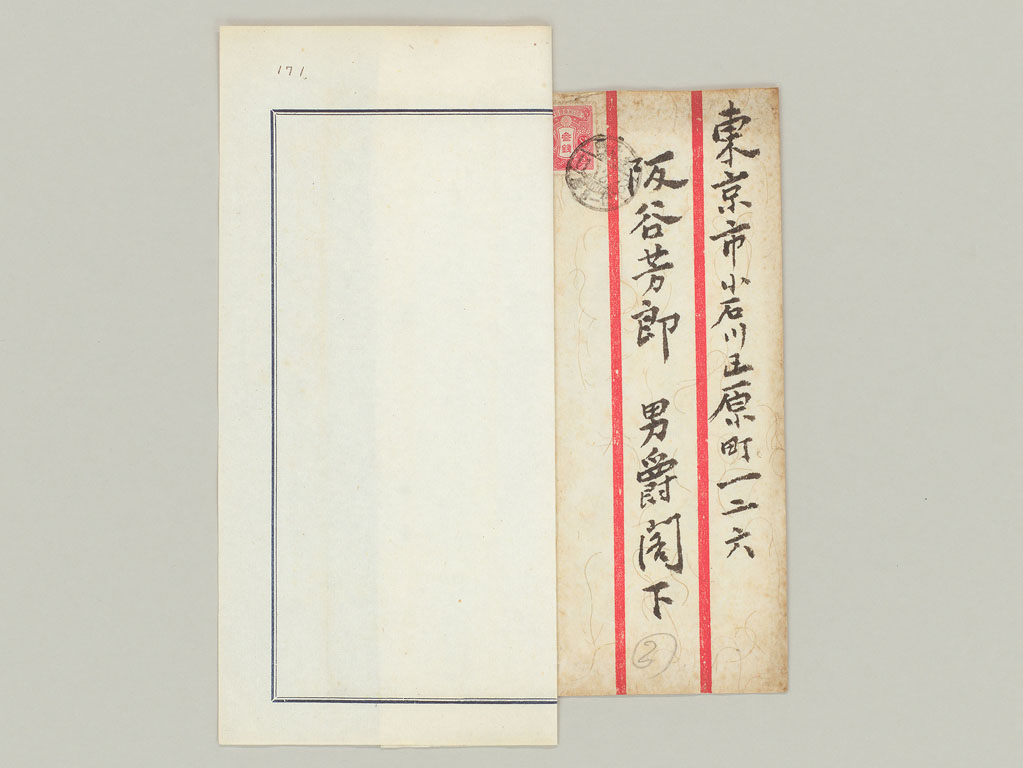 東京市小石川区原町一二六
阪谷芳郎 男爵閣下
2
参銭
171